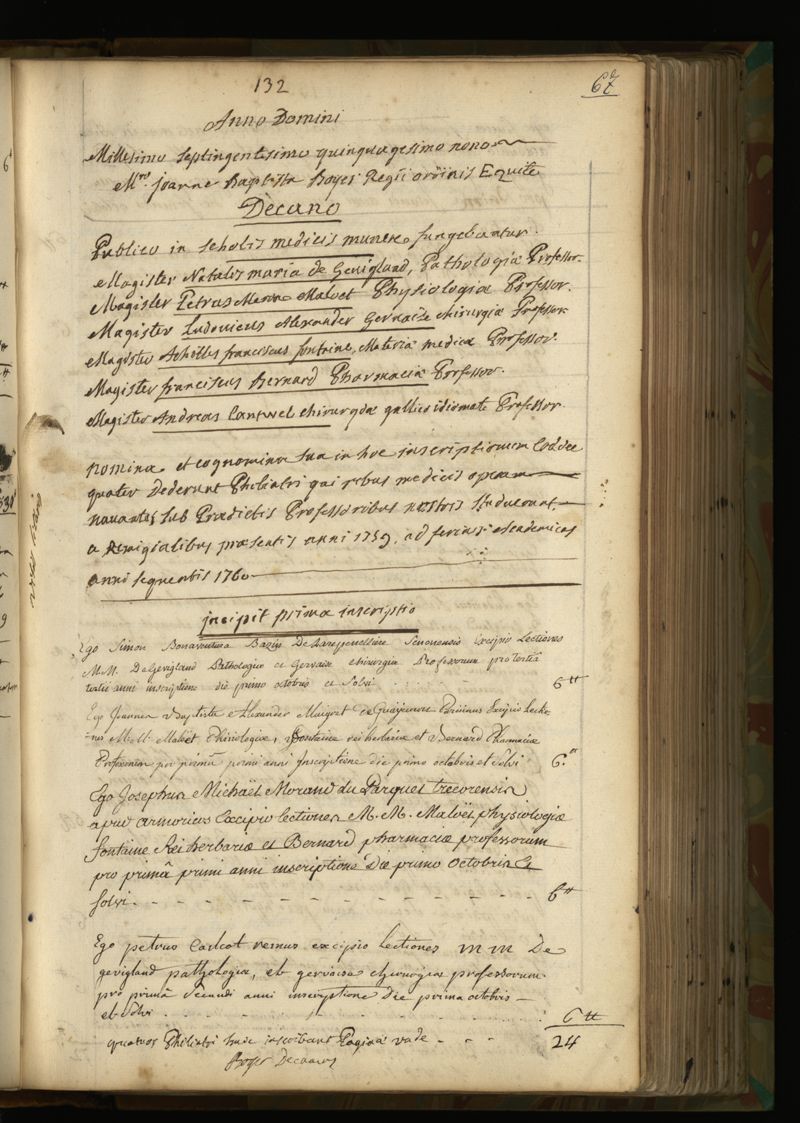 132
67
Anno Domini
Millesimo septingentesimo quinquagesimo nono
Mro Joanne Baptista Boyer Regii ordinis Equite
Decano
Publico in scholis medicis munere fungebantur.
Magister Natalis maria de Gevigland, Pathologiæ Professor.
Magister Petrus Maloet Physiologiæ Professor.
Magister Ludovicus Alexander Gervaise chirurgiæ Professor.
Magister Achilles franciscus fontaine, Materiæ medicæ Professor.
Magister franciscus Bernard Pharmaciæ Professor.
Magister Andreas Cantwel chirurgiæ gallico idiomate Professor.
nomina et cognomina sua in hoc inscriptionum Codice
quater Dederunt Philiatri qui rebus medicis operam
navantes sub Prædictis Professoribus nostris studuerunt,
a Remigialibus præsentis anni 1759, ad ferias academicas
anni sequentis 1760
incipit prima inscriptio
Ego Simon Bonaventura Bazin Senonensis Excipio Lectiones
M.M. De Gevigland Pathologiæ et Gervaise chirurgiæ Professorum pro tertiâ
tertii anni inscriptione die primo octobris et Solvi
6 tt
Ego Joannes Baptista Alexander Maigret Parisinus Excipio Lectio
nes M.M. Maloët Phisiologiæ, Fontaine rei herbariæ et Bernard Pharmaciæ
Professorum pro primâ primi anni Inscriptione die primo octobris et Solvi
6 tt
Ego Josephus Michaël Morand du Parques trecorensis
apud armoricos Excipio lectiones M. M. Maloët physiologiæ
fontaine Rei herbariæ et Bernard pharmaciæ professorum
pro primâ primi anni inscriptione Die primo Octobris &
solvi
6 tt
Ego petrus Carlcot remus excipio Lectiones m m De
gevigland pathologiæ, et gervaise chirurgiæ professorum
pro primâ Secundi anni inscriptione die prima octobris
et Solvi
6 tt
quatuor Philiatri hanc inscribunt Paginâ unde
24
Boyer Decanus